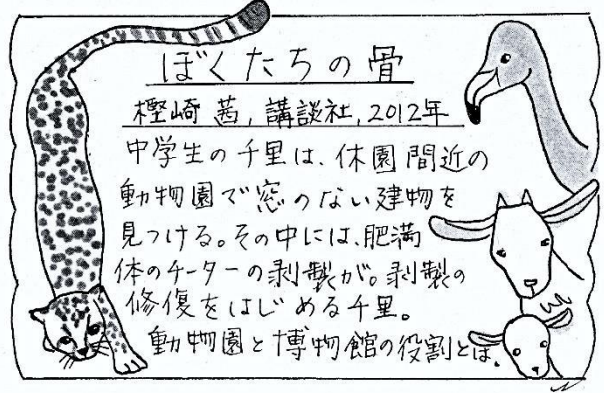 ぼくたちの骨
樫崎茜,講談社,2012年
中学生の千里は、休園間近の
動物園で窓のない建物を
見つける。その中には、肥満
体のチーターの剥製が。剥製の
修復をはじめる千里。
動物園と博物館の役割とは、